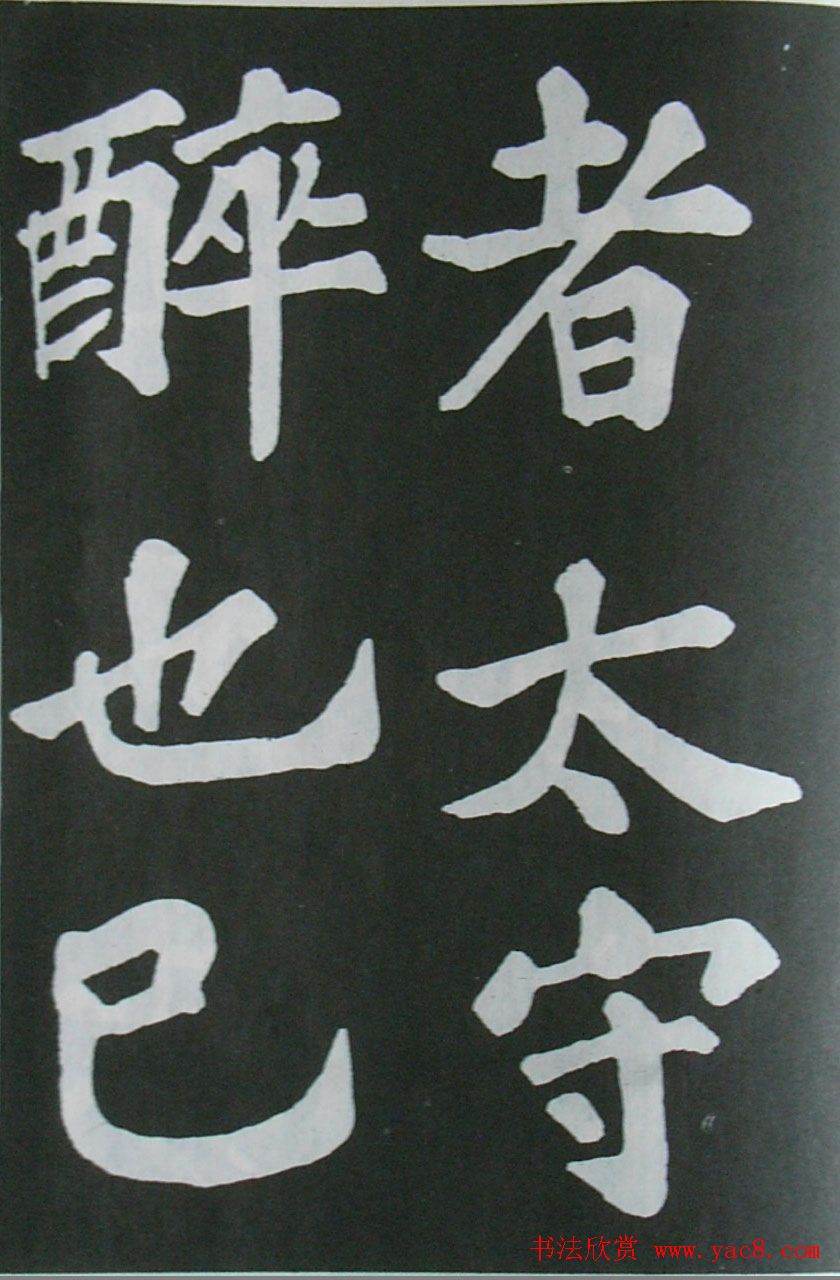 者太守
醉也巳
书法欣赏 www.yac8.com